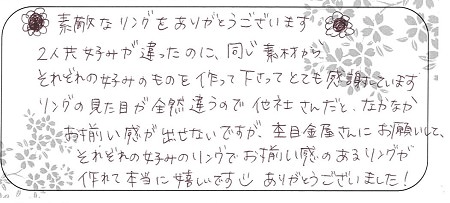 素敵なリングをありがとうございます
2人共好みが違ったのに、同じ素材から
それぞれの好みのものを作って下さってとても感謝しています
リングの見た目が全然違うので他社さんだと、なかなか
お揃い感が出せないですが、杢目金屋さんにお願いして、
それぞれの好みのリングでお揃い感のあるリングが
作れて本当に嬉しいです ありがとうございました!